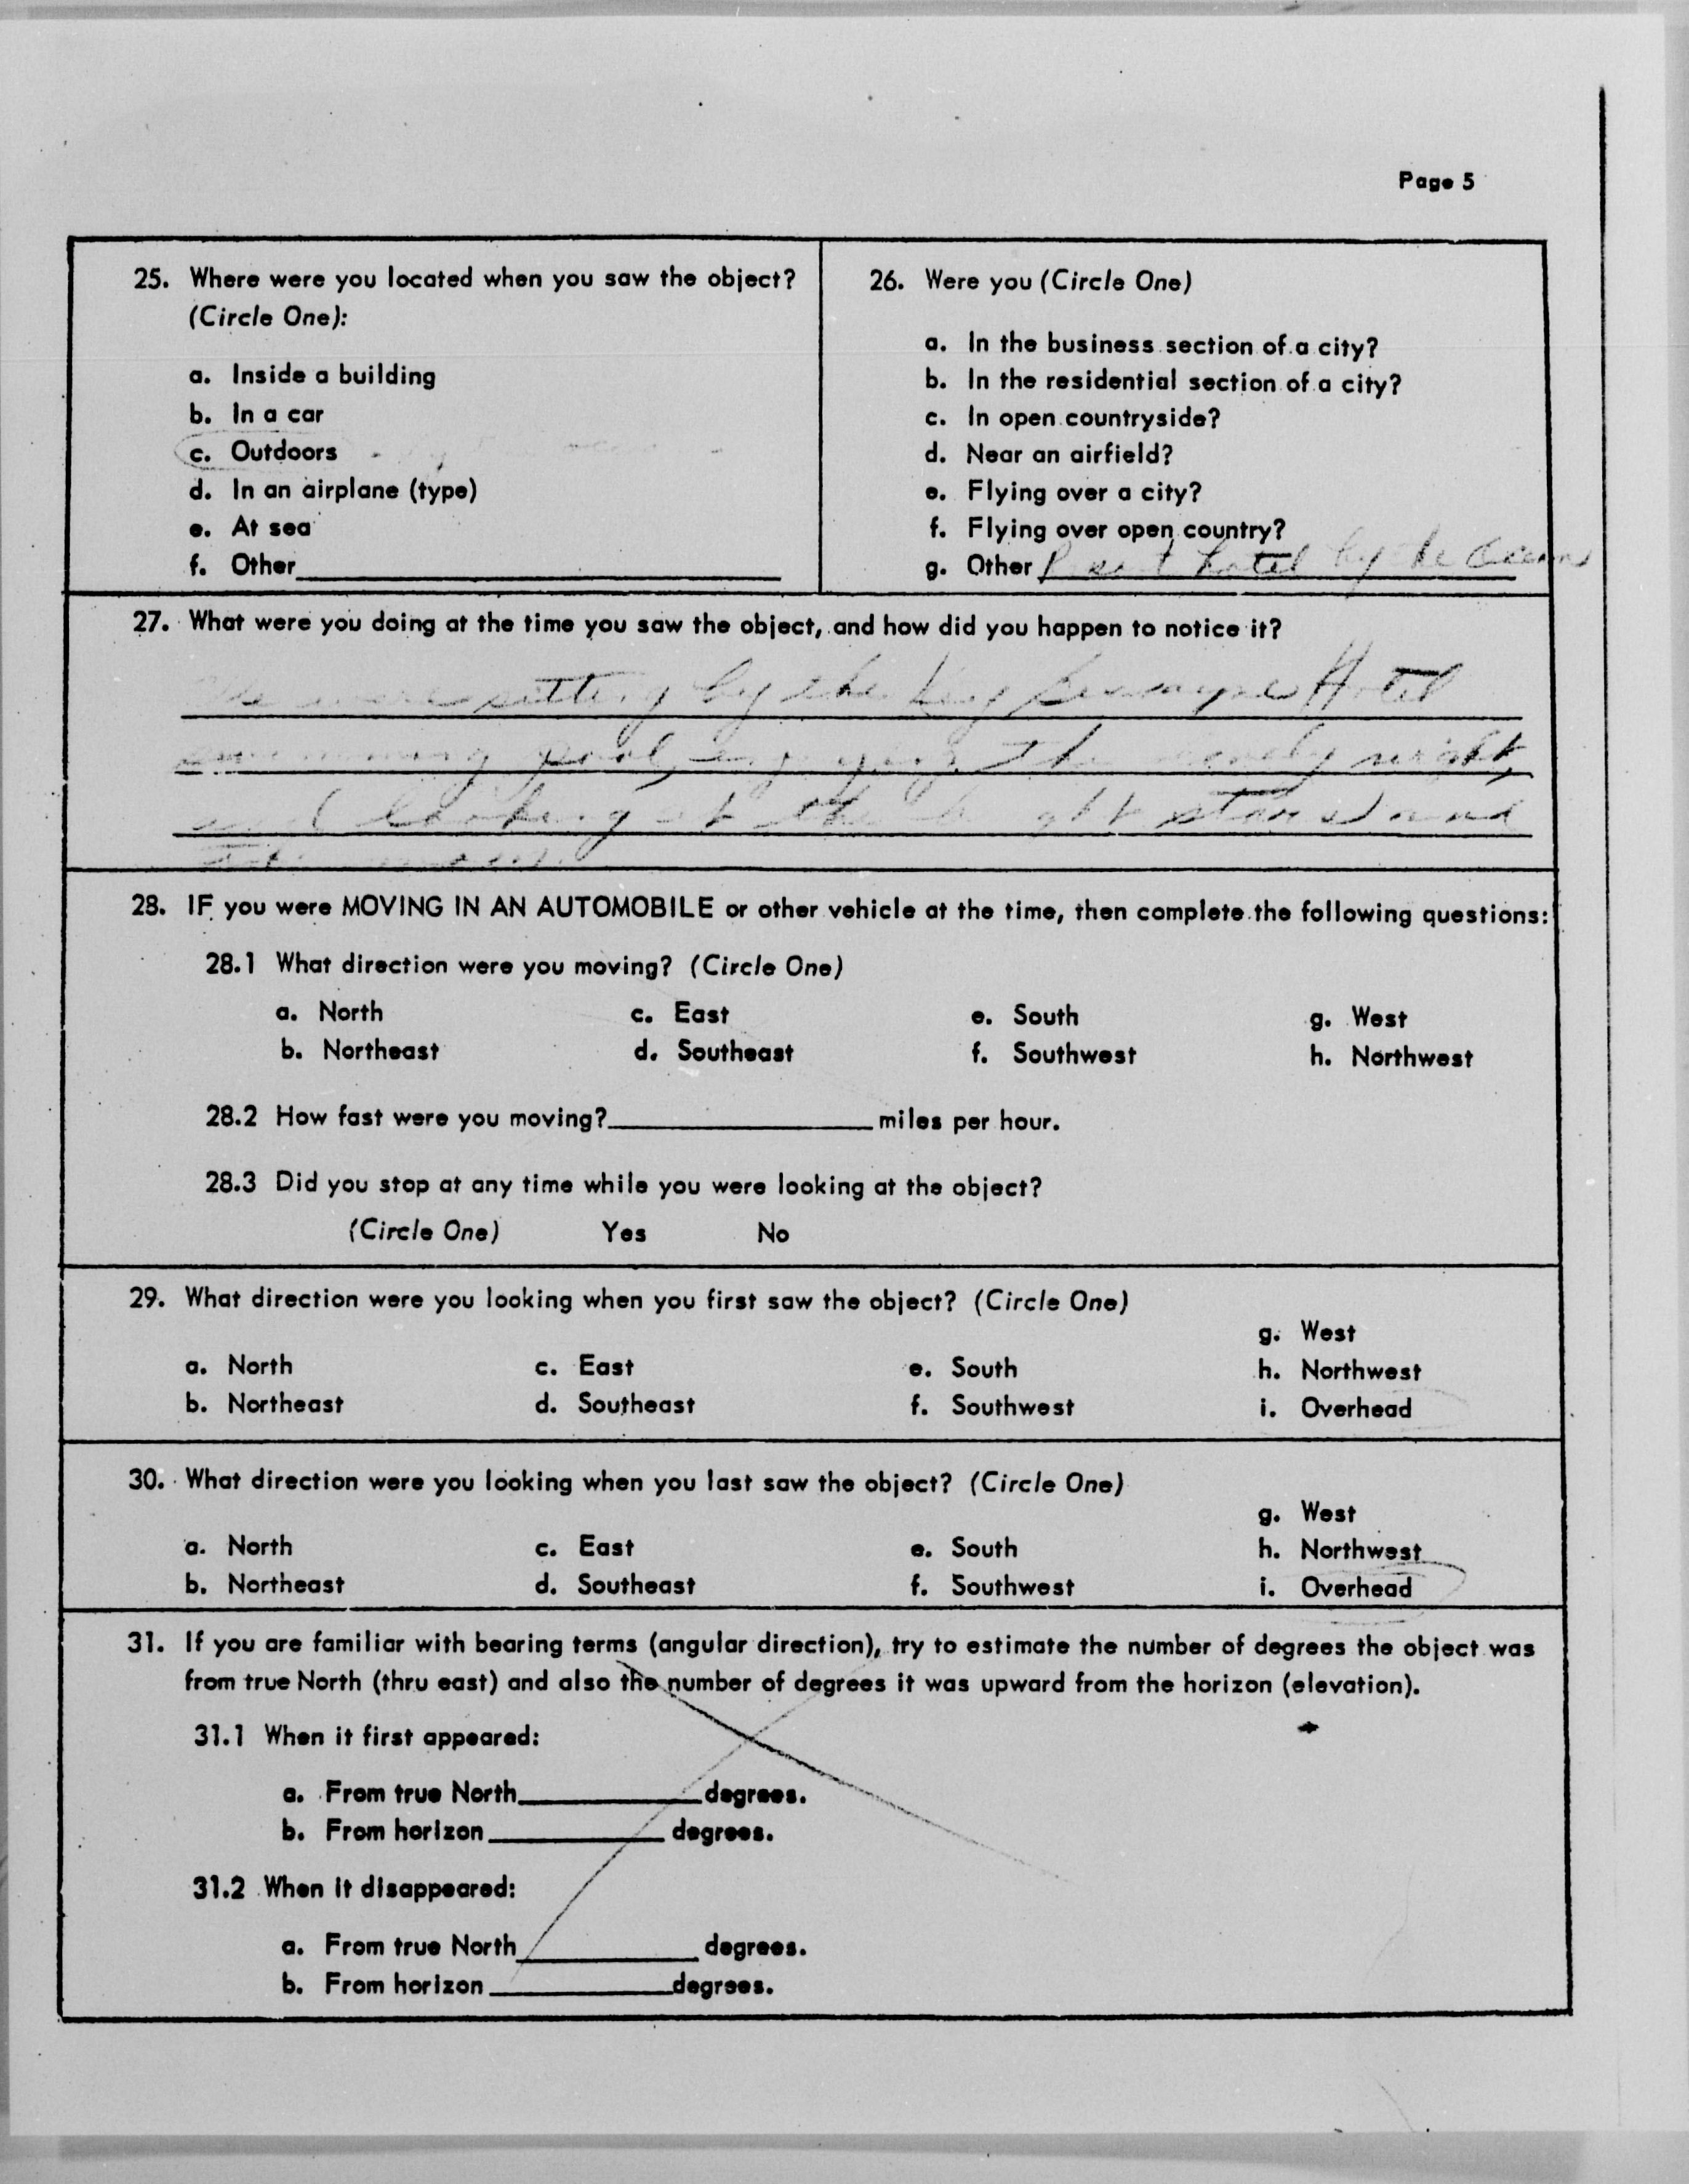 Page 5
25. Where were you located when you saw the object?
(Circle One):
a. Inside a building
b. In a car
c. Outdoors
d. In an airplane (type)
e. At sea
f. Other
26. Were you (Circle One)
a. In the business section of a city?
b. In the residential section of a city?
c. In open countryside?
d. Near an airfield?
e. Flying over a city?
f. Flying over open country?
g. Other hotel by the Ocean
27. What were you doing at the time you saw the object, and how did you happen to notice it?
We were sitting by the Key Biscayne Hotel
swimming pool, enjoying the lovely night,
and looking at the bright stars and
the moon.
28. IF you were MOVING IN AN AUTOMOBILE or other vehicle at the time, then complete the following questions:
28.1 What direction were you moving? (Circle One)
a. North c. East e. South g. West
b. Northeast d. Southeast f. Southwest h. Northwest
28.2 How fast were you moving? miles per hour.
28.3 Did you stop at any time while you were looking at the object?
(Circle One) Yes No
29. What direction were you looking when you first saw the object? (Circle One)
g. West
a. North c. East e. South h. Northwest
b. Northeast d. Southeast f. Southwest i. Overhead
30. What direction were you looking when you last saw the object? (Circle One)
g. West
a. North c. East e. South h. Northwest
b. Northeast d. Southeast f. Southwest i. Overhead
31. If you are familiar with bearing terms (angular direction), try to estimate the number of degrees the object was
from true North (thru east) and also the number of degrees it was upward from the horizon (elevation).
31.1 When it first appeared:
a. From true North degrees.
b. From horizon degrees.
31.2 When it disappeared:
a. From true North degrees.
b. From horizon degrees.